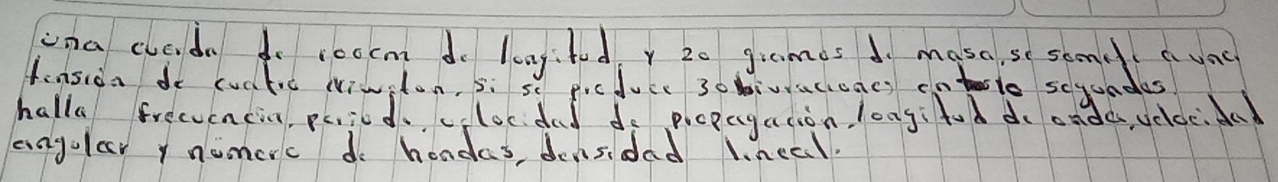 una cuerda de 100cm de longitud y 20 gramos de masa, se somete a una
tensión de cuatro niwnton, si se produce 30 bivraciones en 10 segundos
halla frecuencia, periodo, velocidad de propagación, longitud de onda, velocidad
angular y numero de hondas, densidad lineal.